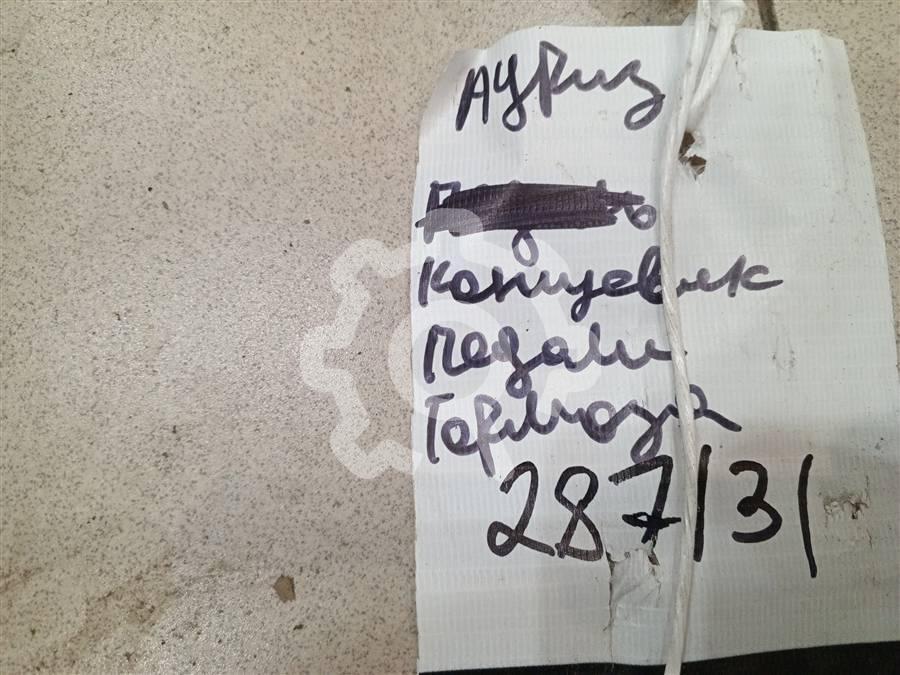 Ауриз
Концевик
Педали
Тормоза
287131